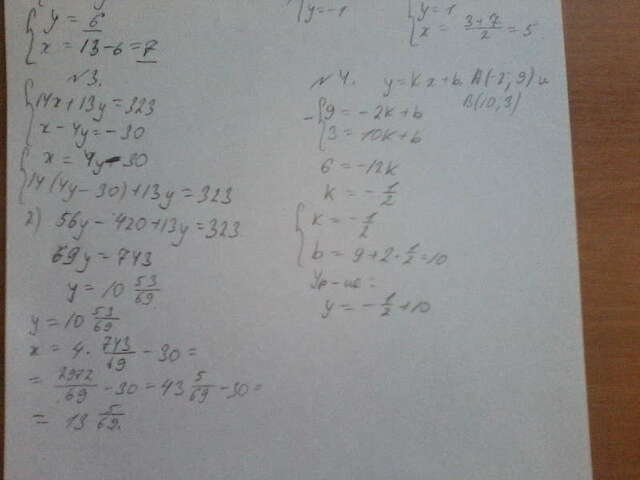 y = 6
x = 13-6 = 7
y = -1
y = 1
x = 3+7/2 = 5
№3.
14x + 13y = 323
x - 4y = -30
x = 4y - 30
14(4y - 30) + 13y = 323
2) 56y - 420 + 13y = 323
69y = 743
y = 10 53/69
y = 10 53/69
x = 4 · 743/69 - 30 =
= 2972/69 - 30 = 43 5/69 - 30 =
= 13 5/69
№4. y = kx + b. A(-2, 9) и
B(10, 3)
9 = -2k + b
3 = 10k + b
6 = -12k
k = -1/2
k = -1/2
b = 9 + 2 · 1/2 = 10
Ур-ие:
y = -1/2 + 10